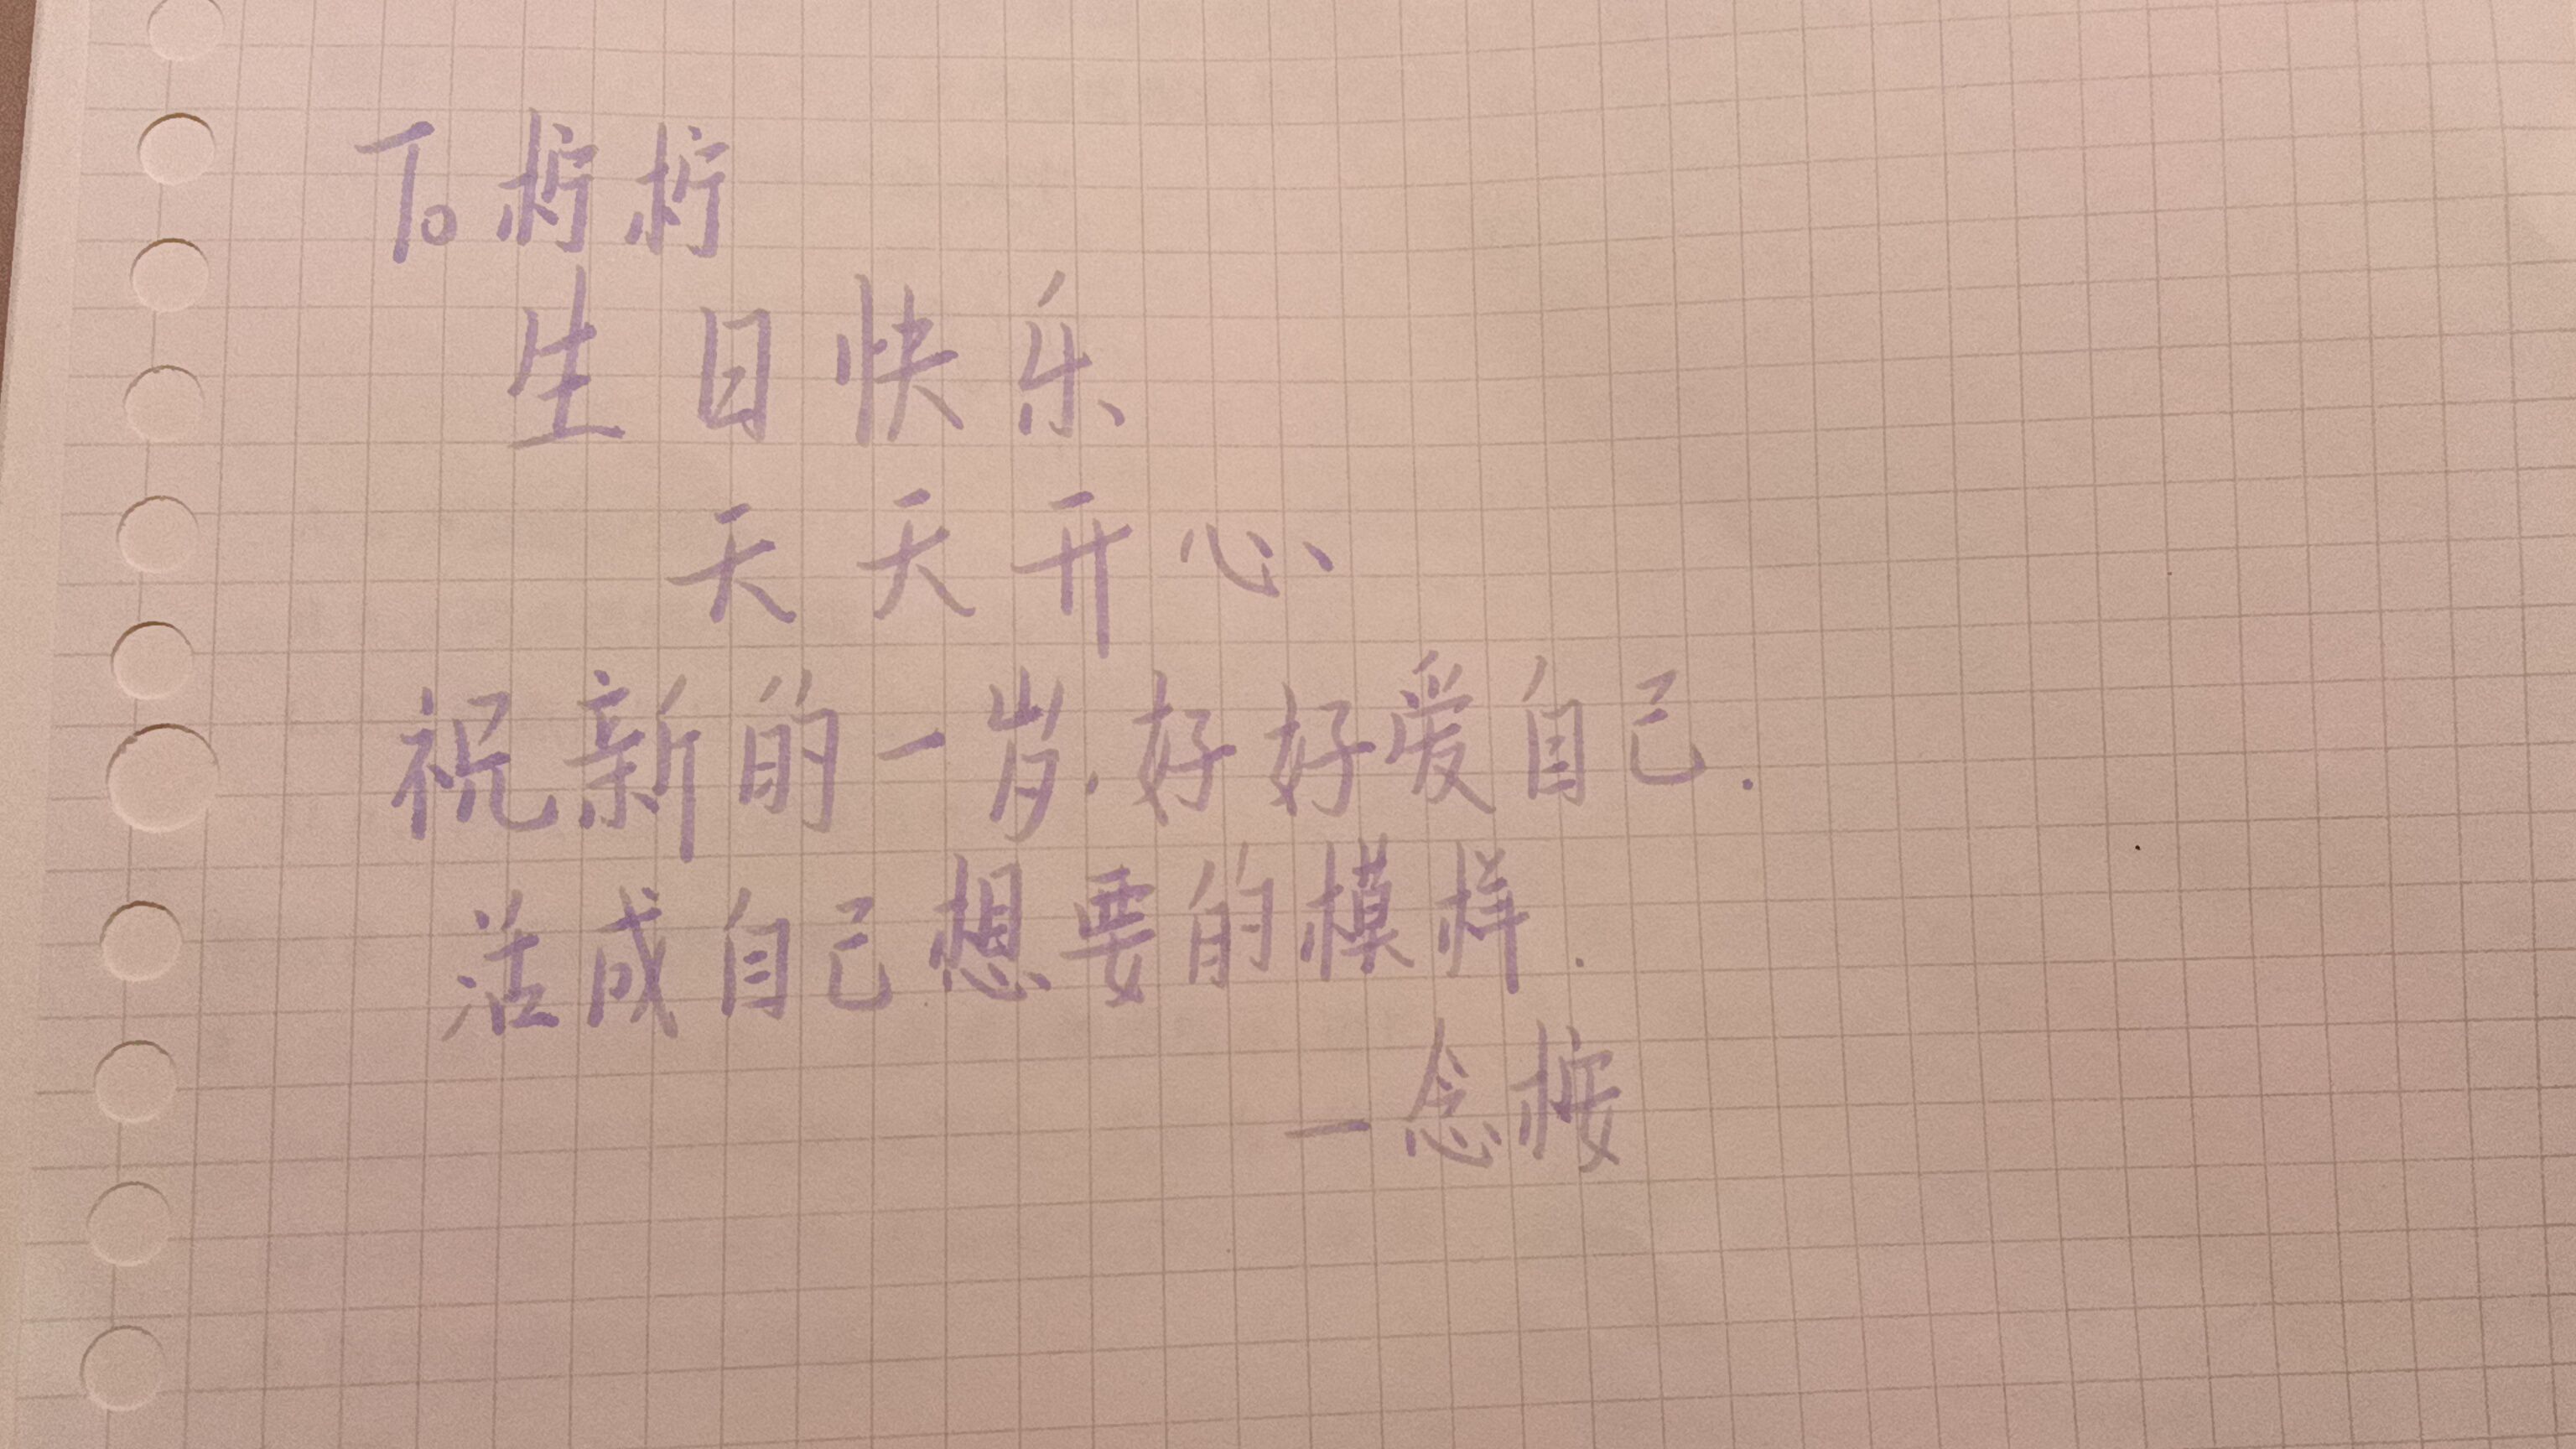 To 柠柠
生日快乐
天天开心
祝新的一岁.好好爱自己.
活成自己想要的模样.
一念桉